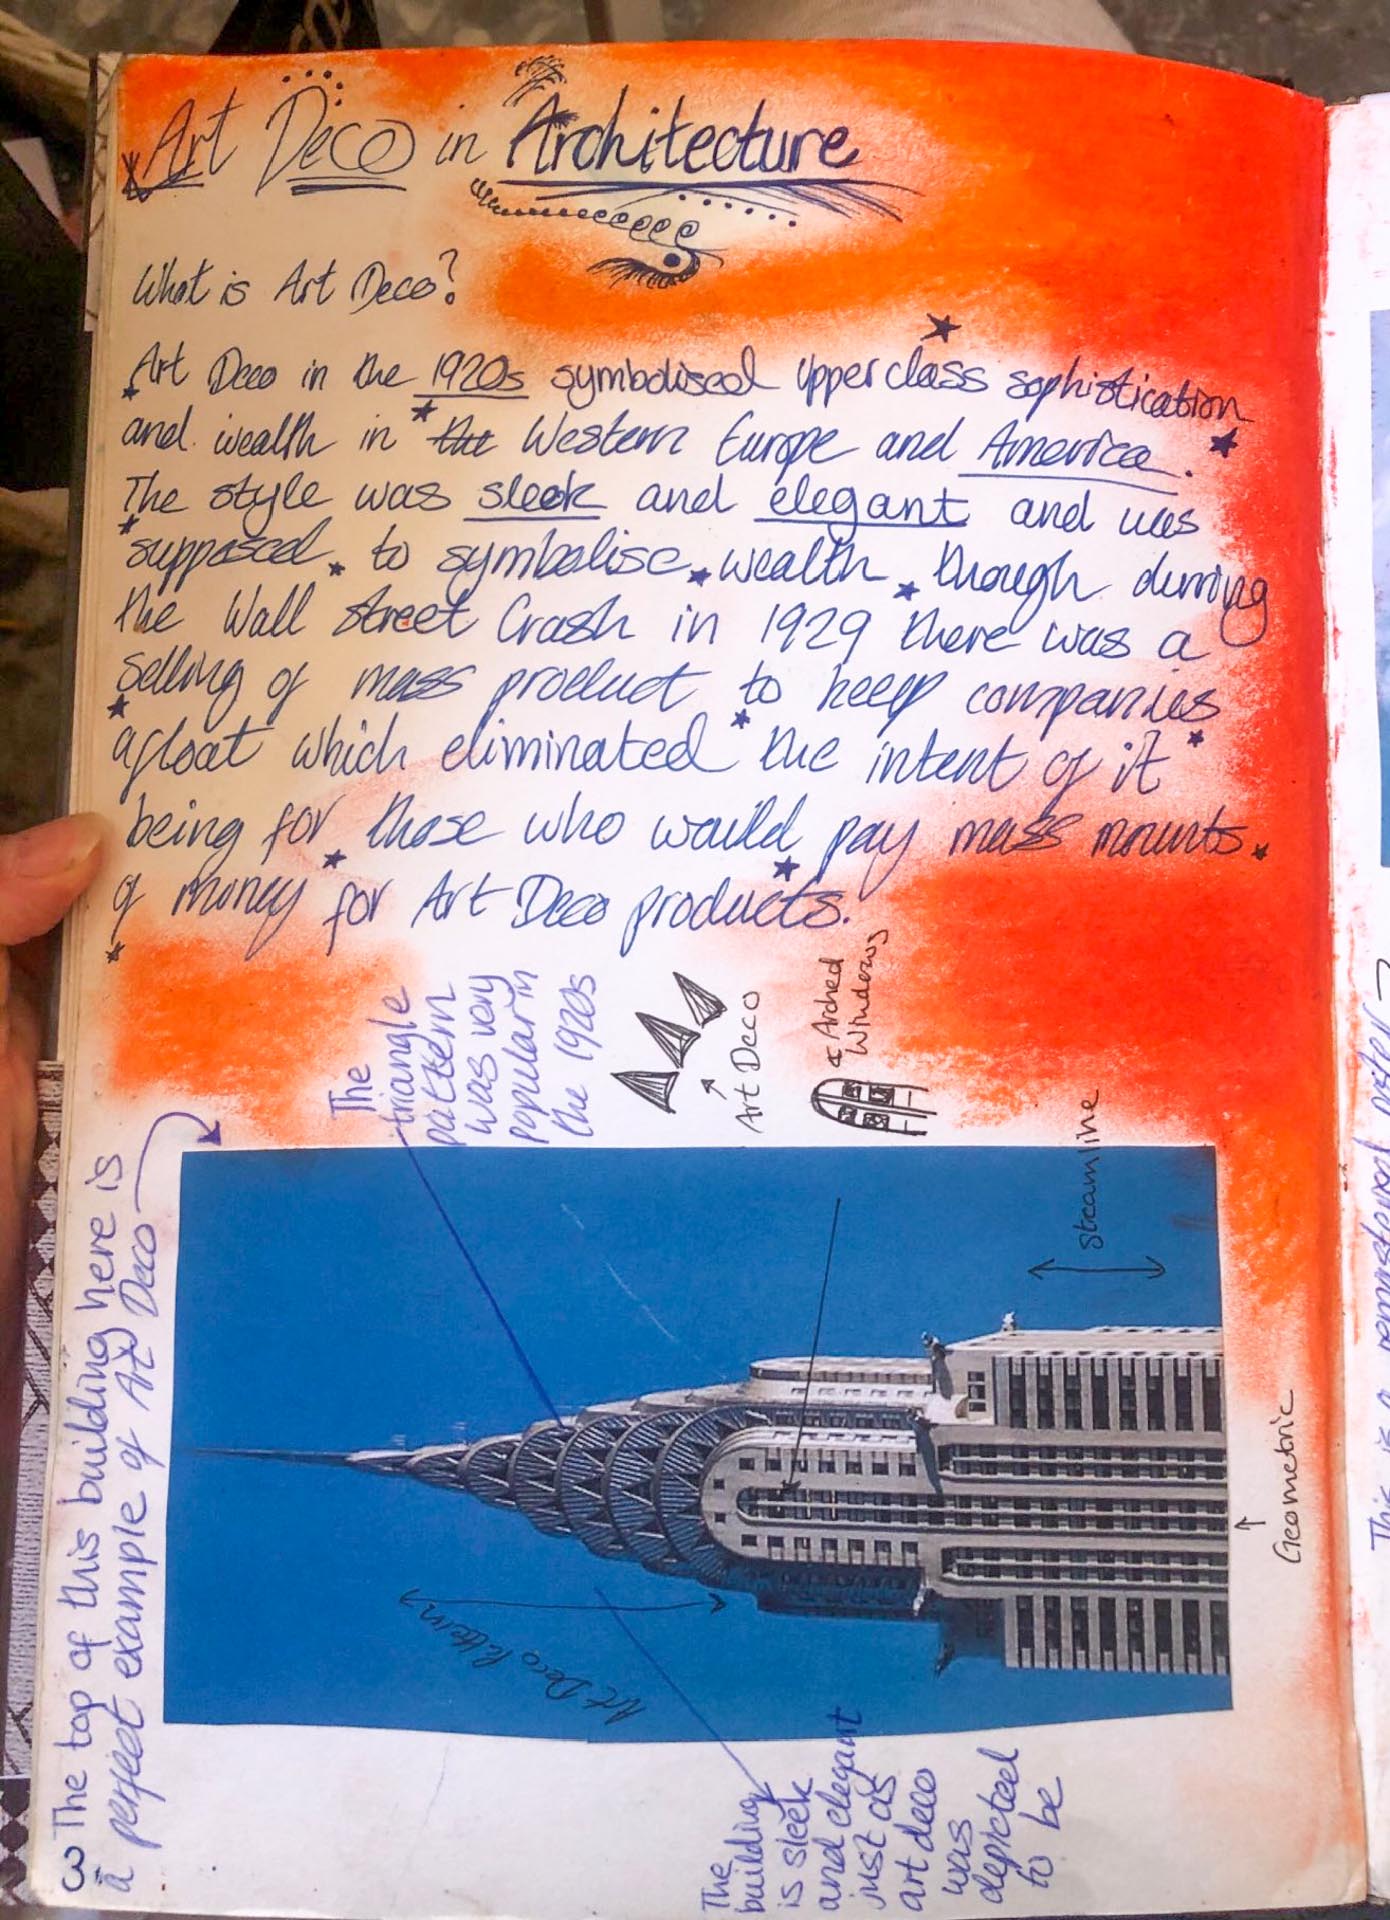 Art Deco in Architecture
What is Art Deco?
Art Deco in the 1920s symbolised upperclass sophistication
and wealth in the Western Europe and America.
The style was sleek and elegant and was
supposed to symbolise wealth though durring
the Wall Street Crash in 1929 there was a
selling of mass product to keep companies
afloat which eliminated the intent of it
being for those who would pay mass mounts
of money for Art Deco products.
The
triangle
pattern
was very
popular in
the 1920s
Art Deco
Arched
Windows
streamline
Geometric
Art Deco Pattern
3 The top of this building here is
a perfect example of Art Deco
The
building
is sleek
and elegant
just as
art deco
was
depicted
to be
This is a